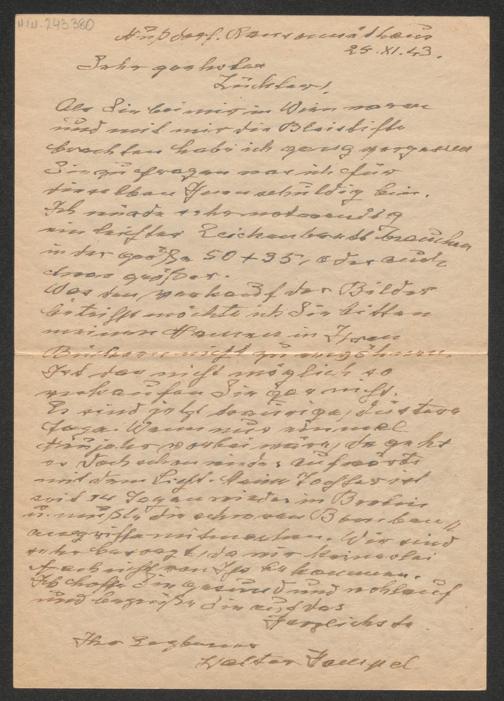 H.I.N. 243380
Nußdorf.
25. XI. 43.
Sehr geehrter
Züchter!
Als Sie bei mir in Wien waren
und mir die Bleistifte
brachten habe ich ganz vergessen
Sie zu fragen was ich für
dieselben Ihnen schuldig bin.
Ich würde sehr notwendig
ein leichtes Zeichenbrett brauchen
in der größe 50 + 35, oder auch
etwas größer.
Was den Verkauf der Bilder
betrifft möchte ich Sie bitten
meinen Namen in Ihren
Büchern nicht zu erwähnen.
Ist das nicht möglich so
verkaufen Sie gar nicht.
Es sind jetzt traurige, düstere
Tage. Wenn nur einmal
vorbei wäre, da geht
es doch schon wieder aufwärts
mit dem Licht. Meine Tochter ist
seit 14 Tagen wieder in Berlin
u. mußte die schweren Bomben-
angriffe mitmachen. Wir sind
sehr besorgt, da wir keinerlei
Nachricht von Ihr bekommen.
Ich hoffe Sie gesund und wohlauf
und begrüße Sie auf das
Herzlichste
Ihr Ergebener
Walter